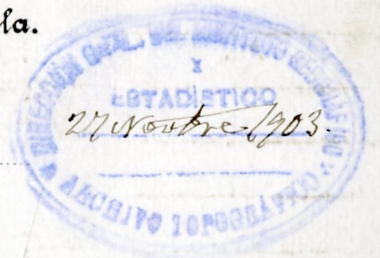 la.
DIRECCIÓN GRAL. DEL INSTITUTO GEOGRÁFICO
Y
ESTADÍSTICO
27 Novbre. 1903.
ARCHIVO TOPOGRÁFICO